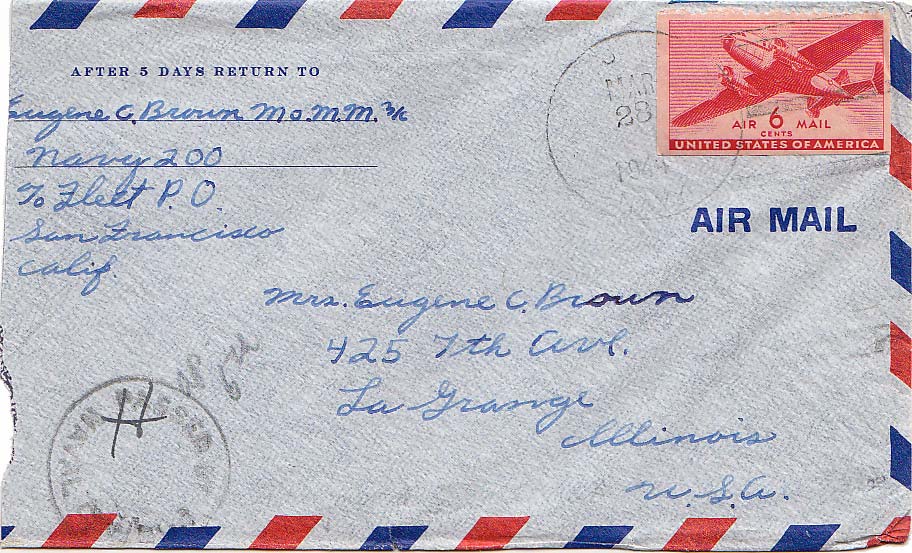 AFTER 5 DAYS RETURN TO
Eugene C. Brown Mo.M.M. 3/c
Navy 200
c/o Fleet P.O.
San Francisco
Calif.
MAR
28
AIR 6 MAIL
CENTS
UNITED STATES OF AMERICA
AIR MAIL
Mrs. Eugene C. Brown
425 7th Ave.
La Grange
Illinois
U.S.A.
PASSED
NAVAL
H